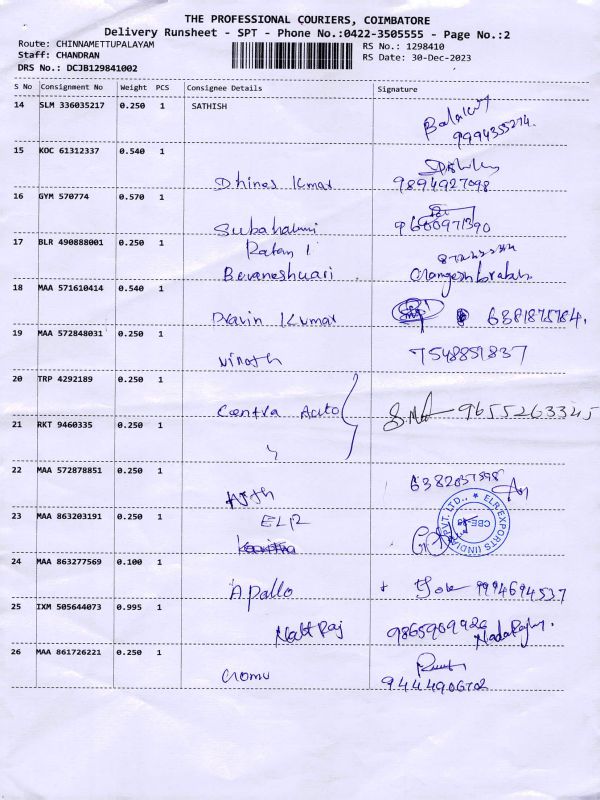 THE PROFESSIONAL COURIERS, COIMBATORE
Delivery Runsheet - SPT - Phone No.:0422-3505555 - Page No.:2
Route: CHINNAMETTUPALAYAM RS No.: 1298410
Staff: CHANDRAN RS Date: 30-Dec-2023
DRS No.: DCJB129841002
S No Consignment No Weight PCS Consignee Details Signature
14 SLM 336035217 0.250 1 SATHISH
9994355274.
15 KOC 61312337 0.540 1
Dhines Kumar 9894927098
16 GYM 570774 0.570 1
9600971390
17 BLR 490888001 0.250 1
18 MAA 571610414 0.540 1
Pravin Kumar 6381875784.
19 MAA 572848031 0.250 1
Vinoth 7548859837
20 TRP 4292189 0.250 1
Centra Auto 9655263345
21 RKT 9460335 0.250 1
22 MAA 572878851 0.250 1
6382037598
23 MAA 863203191 0.250 1
ELR
ELR EXPORTS (INDIA) PVT. LTD., CBE
24 MAA 863277569 0.100 1
Apollo 9994694537
25 IXM 505644073 0.995 1
Natt Raj 9865909926
26 MAA 861726221 0.250 1
9444906702